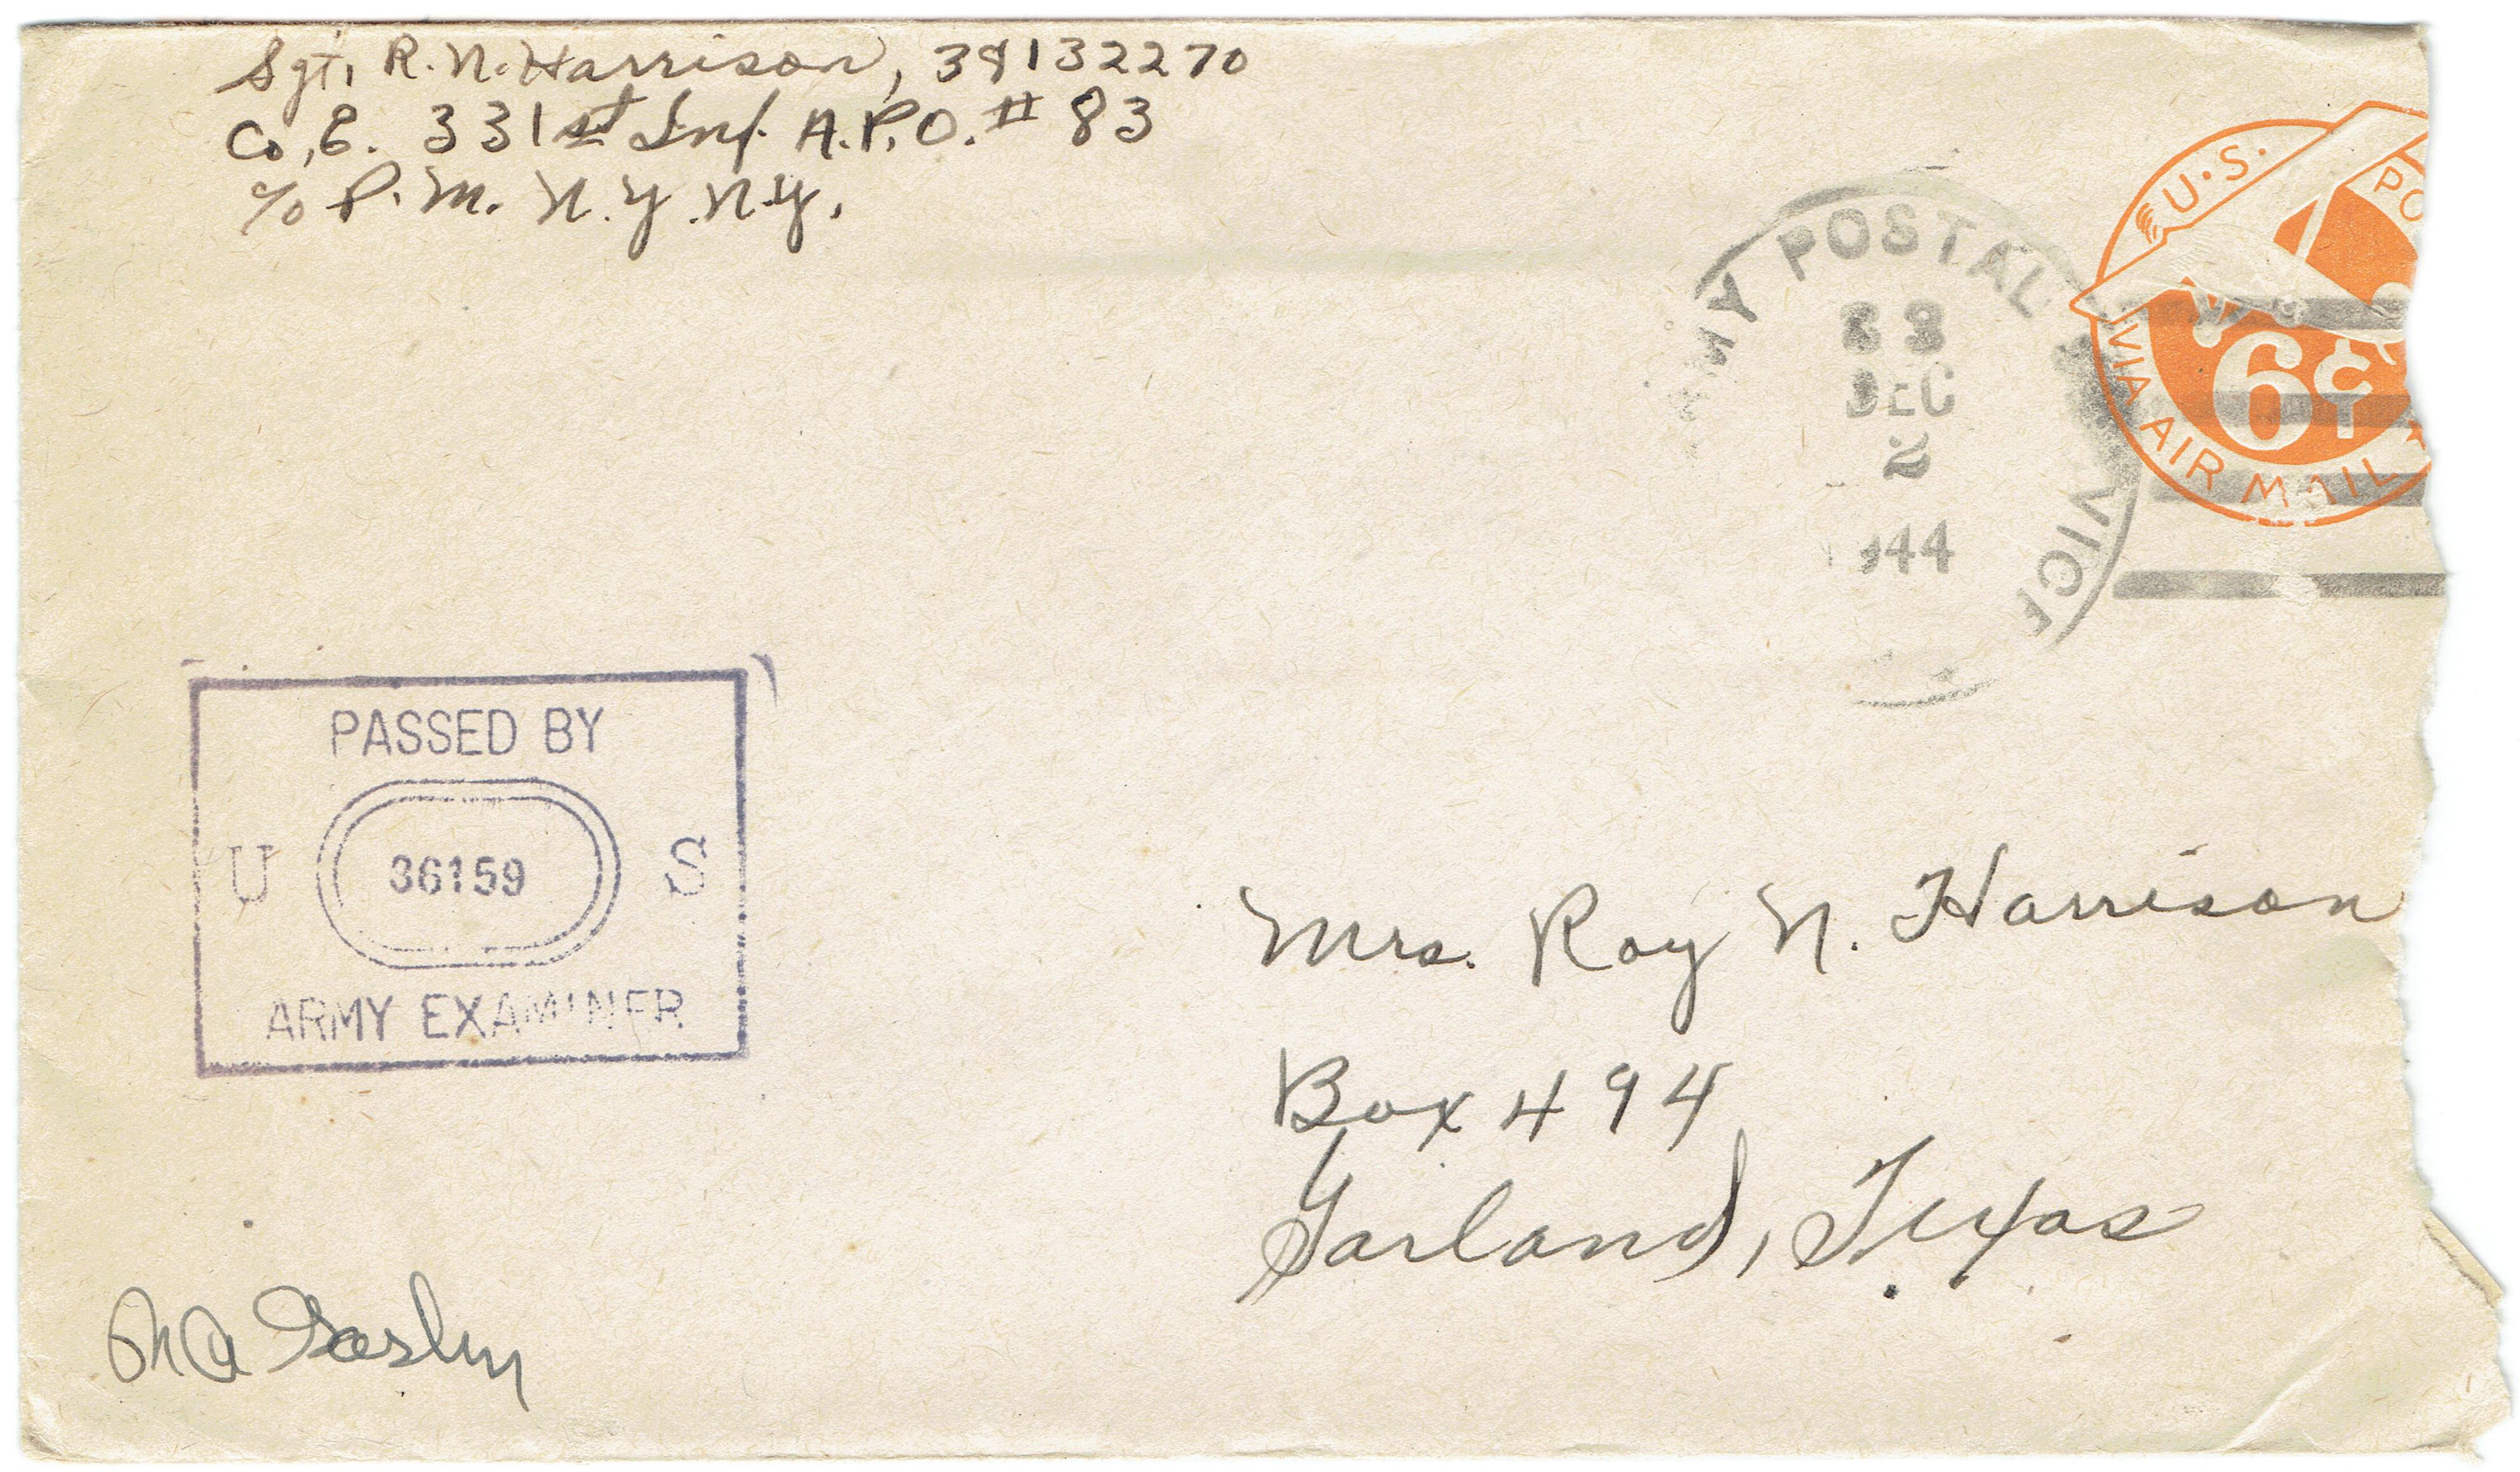 Sgt. R. N. Harrison, 38132270
Co, E. 331st Inf. A.P.O. # 83
c/o P. M. N.Y. N.Y.
U.S. PO
VIA AIR MAIL
6¢
MY POSTAL VICE
DEC
2
1944
PASSED BY
U 36159 S
ARMY EXAMINER
Mrs. Roy N. Harrison
Box 494
Garland, Texas